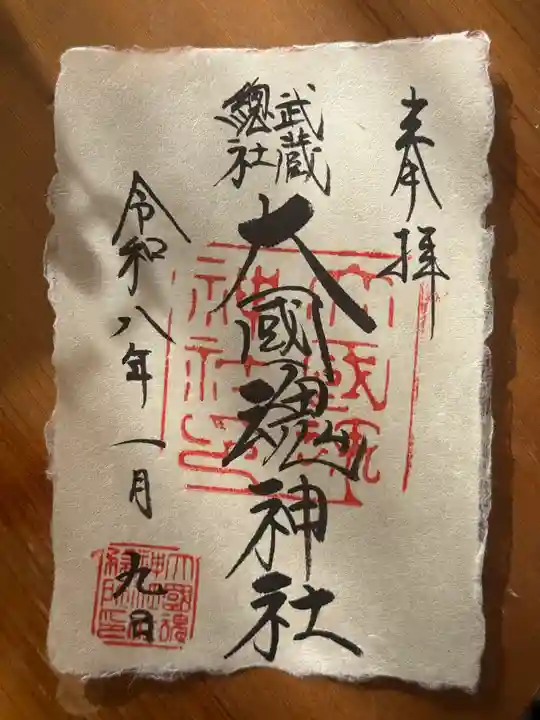 奉拝
武蔵
總社
大國魂神社
令和八年一月九日
大國魂
神社印